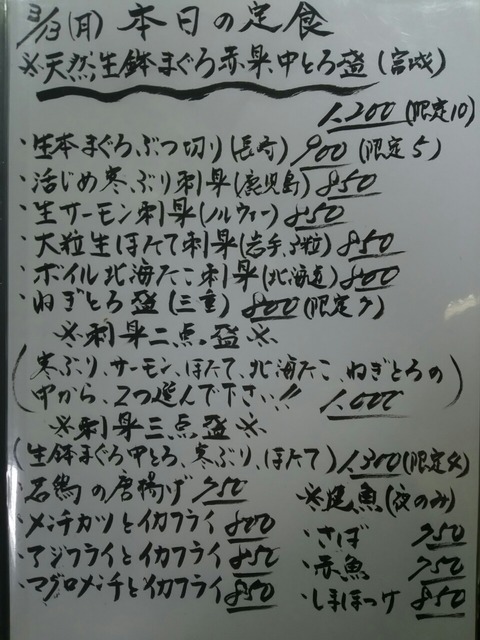 3/13(月) 本日の定食
※天然生鉢まぐろ赤身、中とろ盛(宮城)
1,200(限定10)
・生本まぐろ、ぶつ切り(長崎) 900(限定5)
・活じめ寒ぶり刺身(鹿児島) 850
・生サーモン刺身(ノルウェー) 850
・大粒生ほたて刺身(岩手、3粒) 850
・ボイル北海たこ刺身(北海道) 800
・ねぎとろ盛(三重) 800(限定7)
※刺身二点盛※
(寒ぶり、サーモン、ほたて、北海たこ、ねぎとろの
中から、2つ選んで下さい!!) 1,000
※刺身三点盛※
(生鉢まぐろ中とろ、寒ぶり、ほたて) 1,300(限定4)
・若鶏の唐揚げ 750
・メンチカツとイカフライ 800
・アジフライとイカフライ 850
・マグロメンチとイカフライ 850
※焼魚(夜のみ)
・さば 750
・赤魚 750
・しまほっけ 850